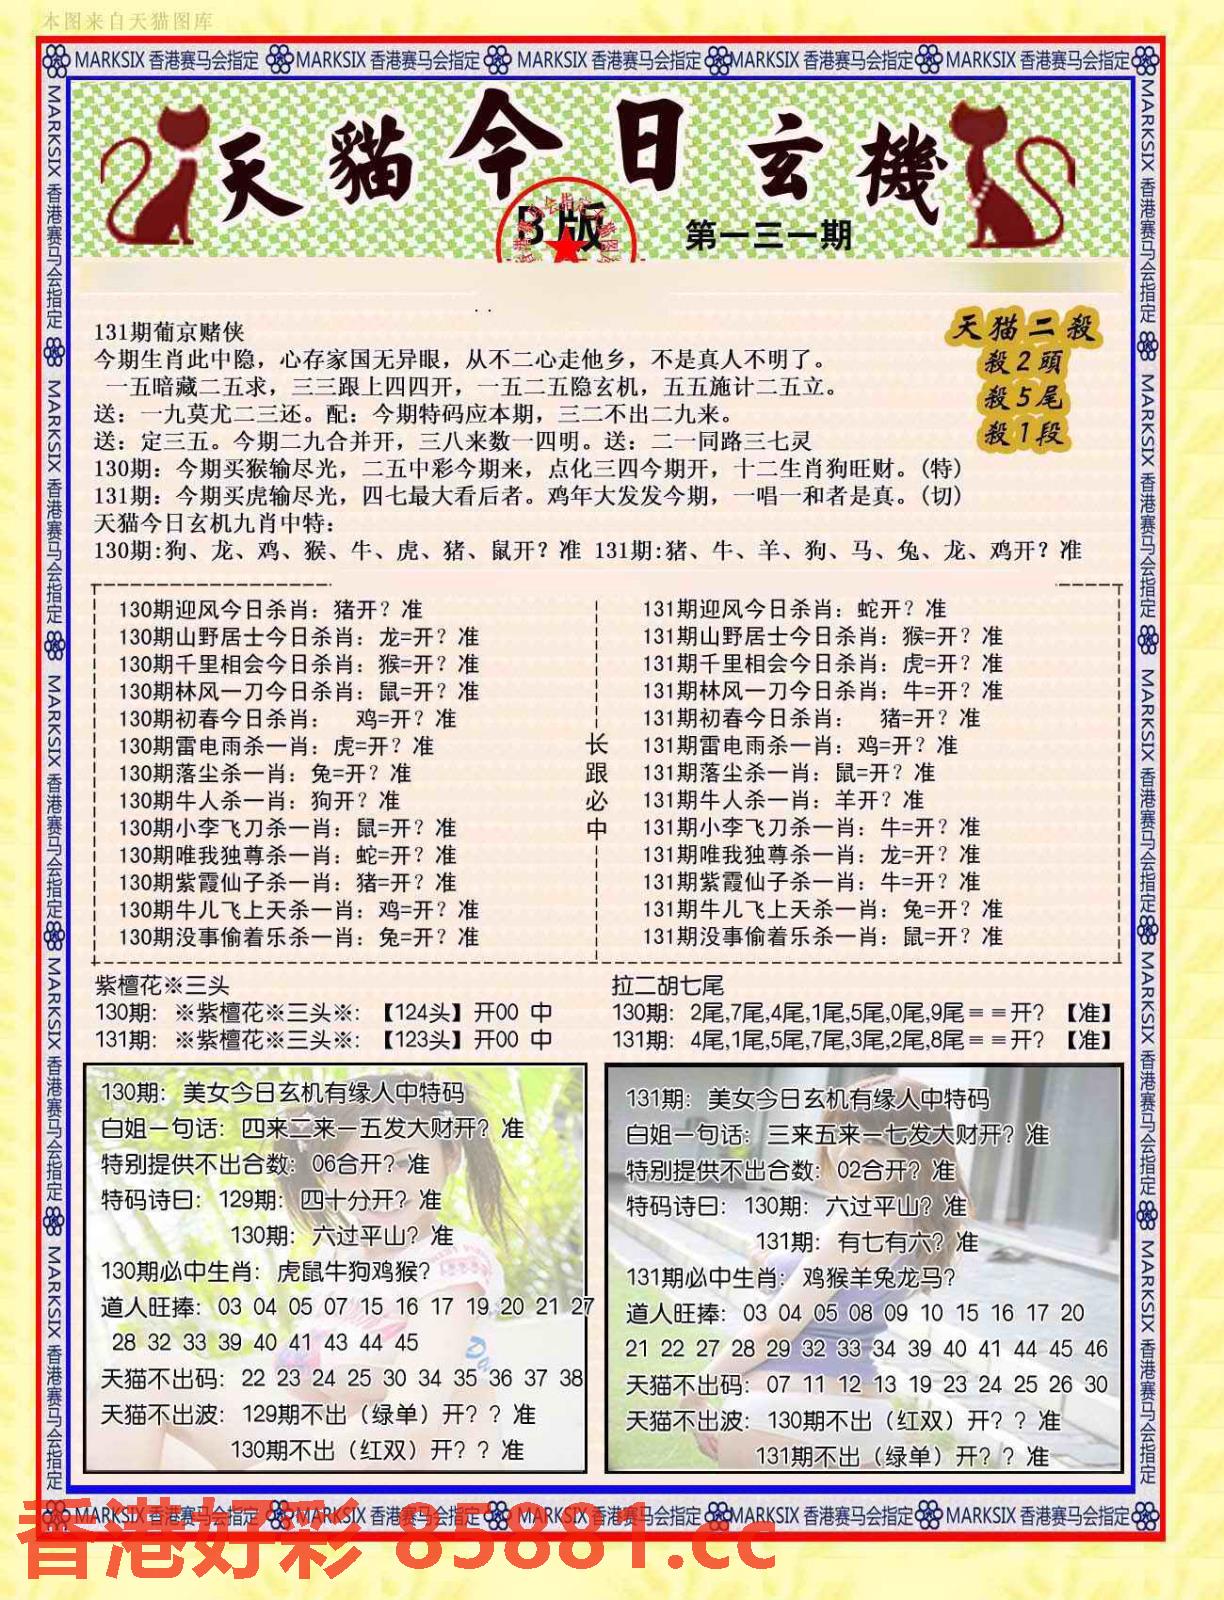 本图来自天猫图库
MARKSIX 香港赛马会指定 MARKSIX 香港赛马会指定 MARKSIX 香港赛马会指定 MARKSIX 香港赛马会指定 MARKSIX 香港赛马会指定
天貓今日玄機
B版
第一三一期
天猫二殺
殺2頭
殺5尾
殺1段
131期葡京赌侠
今期生肖此中隐，心存家国无异眼，从不二心走他乡，不是真人不明了。
一五暗藏二五求，三三跟上四四开，一五二五隐玄机，五五施计二五立。
送：一九莫尤二三还。配：今期特码应本期，三二不出二九来。
送：定三五。今期二九合并开，三八来数一四明。送：二一同路三七灵
130期：今期买猴输尽光，二五中彩今期来，点化三四今期开，十二生肖狗旺财。（特）
131期：今期买虎输尽光，四七最大看后者。鸡年大发发今期，一唱一和者是真。（切）
天猫今日玄机九肖中特：
130期:狗、龙、鸡、猴、牛、虎、猪、鼠开？准 131期:猪、牛、羊、狗、马、兔、龙、鸡开？准
130期迎风今日杀肖：猪开？准
130期山野居士今日杀肖：龙=开？准
130期千里相会今日杀肖：猴=开？准
130期林风一刀今日杀肖：鼠=开？准
130期初春今日杀肖： 鸡=开？准
130期雷电雨杀一肖：虎=开？准
130期落尘杀一肖：兔=开？准
130期牛人杀一肖：狗开？准
130期小李飞刀杀一肖：鼠=开？准
130期唯我独尊杀一肖：蛇=开？准
130期紫霞仙子杀一肖：猪=开？准
130期牛儿飞上天杀一肖：鸡=开？准
130期没事偷着乐杀一肖：兔=开？准
长跟必中
131期迎风今日杀肖：蛇开？准
131期山野居士今日杀肖：猴=开？准
131期千里相会今日杀肖：虎=开？准
131期林风一刀今日杀肖：牛=开？准
131期初春今日杀肖： 猪=开？准
131期雷电雨杀一肖：鸡=开？准
131期落尘杀一肖：鼠=开？准
131期牛人杀一肖：羊开？准
131期小李飞刀杀一肖：牛=开？准
131期唯我独尊杀一肖：龙=开？准
131期紫霞仙子杀一肖：牛=开？准
131期牛儿飞上天杀一肖：兔=开？准
131期没事偷着乐杀一肖：鼠=开？准
紫檀花※三头
130期：※紫檀花※三头※：【124头】开00 中
131期：※紫檀花※三头※：【123头】开00 中
拉二胡七尾
130期：2尾,7尾,4尾,1尾,5尾,0尾,9尾＝＝开？【准】
131期：4尾,1尾,5尾,7尾,3尾,2尾,8尾＝＝开？【准】
130期：美女今日玄机有缘人中特码
白姐一句话：四来二来一五发大财开？准
特别提供不出合数：06合开？准
特码诗曰：129期：四十分开？准
130期：六过平山？准
130期必中生肖：虎鼠牛狗鸡猴？
道人旺捧：03 04 05 07 15 16 17 19 20 21 27
28 32 33 39 40 41 43 44 45
天猫不出码：22 23 24 25 30 34 35 36 37 38
天猫不出波：129期不出（绿单）开？？准
130期不出（红双）开？？准
131期：美女今日玄机有缘人中特码
白姐一句话：三来五来一七发大财开？准
特别提供不出合数：02合开？准
特码诗曰：130期：六过平山？准
131期：有七有六？准
131期必中生肖：鸡猴羊兔龙马？
道人旺捧：03 04 05 08 09 10 15 16 17 20
21 22 27 28 29 32 33 34 39 40 41 44 45 46
天猫不出码：07 11 12 13 19 23 24 25 26 30
天猫不出波：130期不出（红双）开？？准
131期不出（绿单）开？？准
MARKSIX 香港赛马会指定 MARKSIX 香港赛马会指定 MARKSIX 香港赛马会指定 MARKSIX 香港赛马会指定 MARKSIX 香港赛马会指定
香港好彩 85881.cc